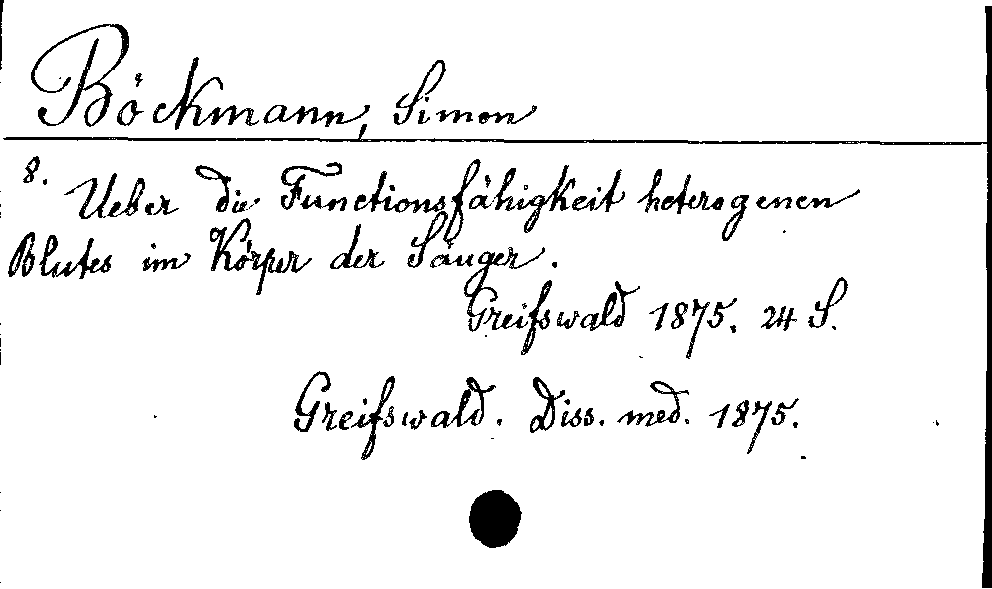 Böckmann, Simon
8.
Ueber die Functionsfähigkeit heterogenen
Blutes im Körper der Säuger.
Greifswald 1875. 24 S.
Greifswald. Diss. med. 1875.